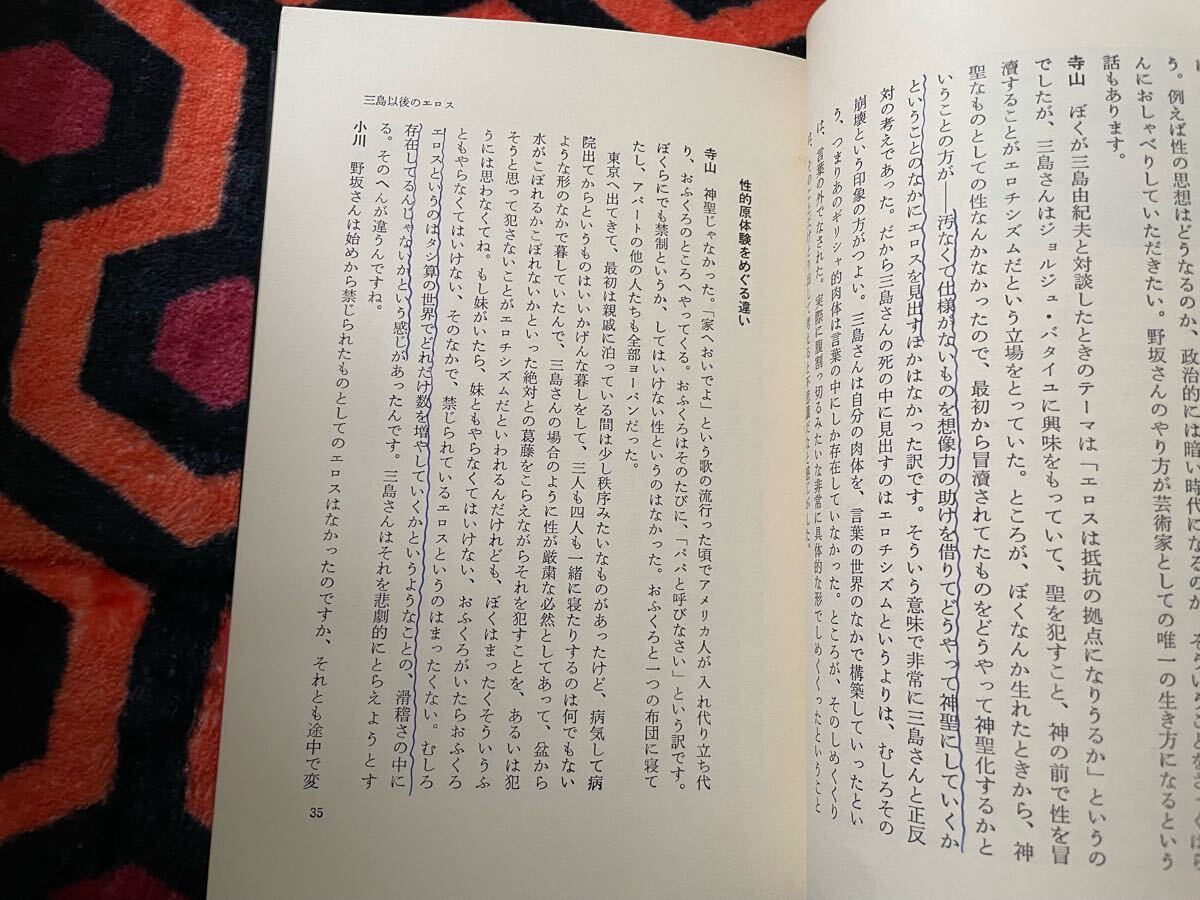 う。例えば性の思想はどうなるのか、政治的には暗い時代になるのか、
んにおしゃべりしていただきたい。野坂さんのやり方が芸術家としての唯一の生き方になるという
話もあります。
寺山　ぼくが三島由紀夫と対談したときのテーマは「エロスは抵抗の拠点になりうるか」というの
でしたが、三島さんはジョルジュ・バタイユに興味をもっていて、聖を犯すこと、神の前で性を冒
瀆することがエロチシズムだという立場をとっていた。ところが、ぼくなんか生れたときから、神
聖なものとしての性なんかなかったので、最初から冒瀆されてたものをどうやって神聖化するかと
いうことの方が――汚なくて仕様がないものを想像力の助けを借りてどうやって神聖にしていくか
ということのなかにエロスを見出すほかはなかった訳です。そういう意味で非常に三島さんと正反
対の考えであった。だから三島さんの死の中に見出すのはエロチシズムというよりは、むしろその
崩壊という印象の方がつよい。三島さんは自分の肉体を、言葉の世界のなかで構築していったとい
う、つまりあのギリシャ的肉体は言葉の中にしか存在していなかった。ところが、そのしめくくり
は、言葉の外でなされた。実際に腹割っ切るみたいな非常に具体的な形でしめくくったということ
三島以後のエロス
性的原体験をめぐる違い
寺山　神聖じゃなかった。「家へおいでよ」という歌の流行った頃でアメリカ人が入れ代り立ち代
り、おふくろのところへやってくる。おふくろはそのたびに、「パパと呼びなさい」という訳です。
ぼくらにでも禁制というか、してはいけない性というのはなかった。おふくろと一つの布団に寝て
たし、アパートの他の人たちも全部ヨーパンだった。
東京へ出てきて、最初は親戚に泊っている間は少し秩序みたいなものがあったけど、病気して病
院出てからというものはいいかげんな暮しをして、三人も四人も一緒に寝たりするのは何でもない
ような形のなかで暮していたんで、三島さんの場合のように性が厳粛な必然としてあって、盆から
水がこぼれるかこぼれないかといった絶対との葛藤をこらえながらそれを犯すことを、あるいは犯
そうと思って犯さないことがエロチシズムだといわれるんだけれども、ぼくはまったくそういうふ
うには思わなくてね。もし妹がいたら、妹ともやらなくてはいけない、おふくろがいたらおふくろ
ともやらなくてはいけない、そのなかで、禁じられているエロスというのはまったくない。むしろ
エロスというのはタシ算の世界でどれだけ数を増やしていくかというようなことの、滑稽さの中に
存在してるんじゃないかという感じがあったんです。三島さんはそれを悲劇的にとらえようとす
る。そのへんが違うんですね。
小川　野坂さんは始めから禁じられたものとしてのエロスはなかったのですか、それとも途中で変
35